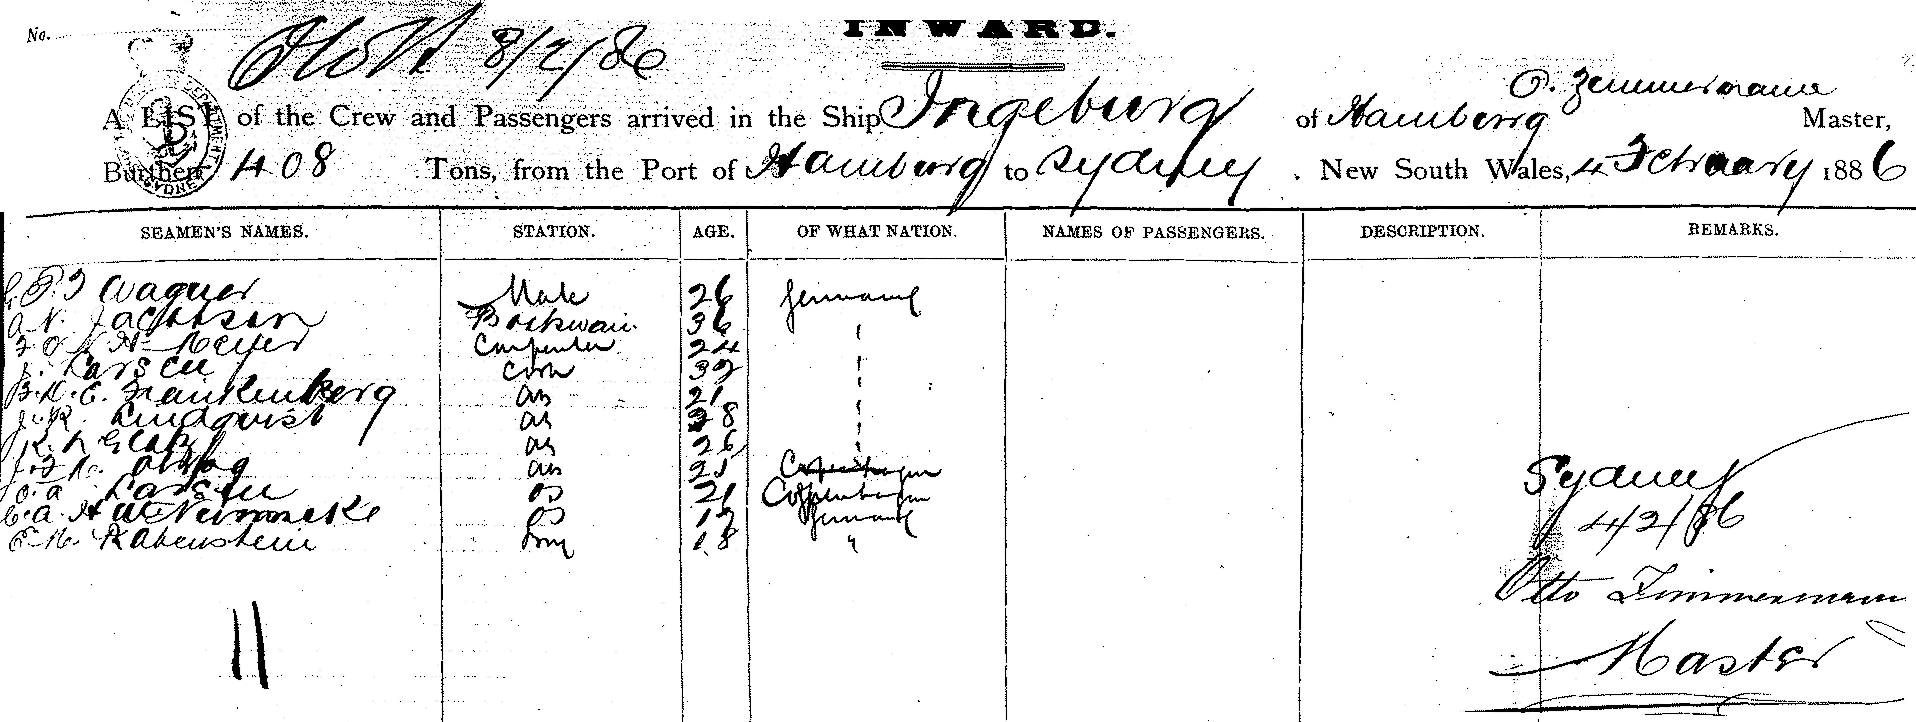 No.
INWARD.
8/2/86
O. Zimmermann
A LIST of the Crew and Passengers arrived in the Ship Ingeburg of Hamburg Master,
Burthen 408 Tons, from the Port of Hamburg to Sydney . New South Wales, 4 February 1886
SEAMEN'S NAMES. STATION. AGE. OF WHAT NATION. NAMES OF PASSENGERS. DESCRIPTION. REMARKS.
Wagner Mate 26 Germany
A. N. Jacobsen Boatswain 36 "
Meyer Carpenter 24 "
Larsen Cook 32 "
B. K. E. Frankenberg AB 21 "
J. R. Lindqvist AB 28 "
AB 26 "
AB 21 Copenhagen
Larsen OS 21 Coppenhagen
C. A. OS 19 Germany
E. M. Rabenstein Boy 18 "
11
Sydney
4/2/86
Otto Zimmermann
Master